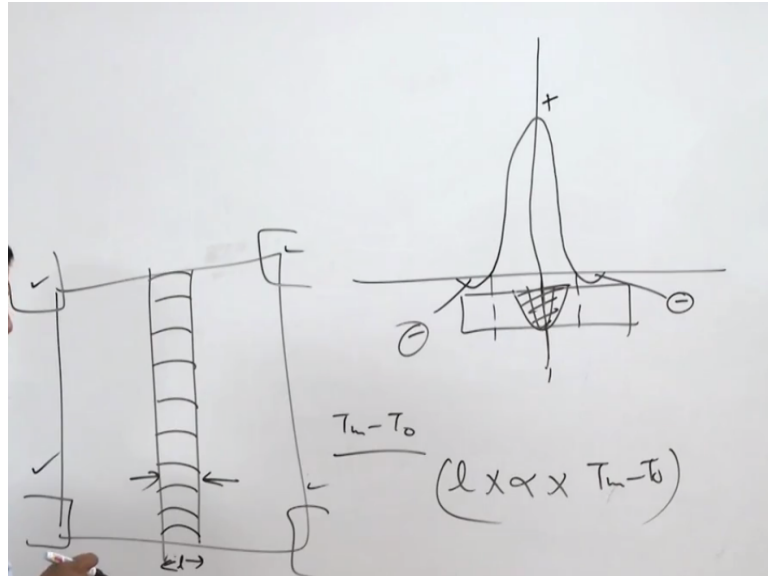 +
⊖
⊖
Tm - To
(l × α × Tm - To)
l